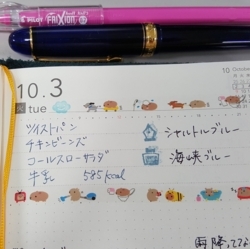 PILOT FRIXION
10.3
火 tue
10 October
ツイストパン
チキンビーンズ
コールスローサラダ
牛乳 585kcal
シャルトルブルー
海峡ブルー